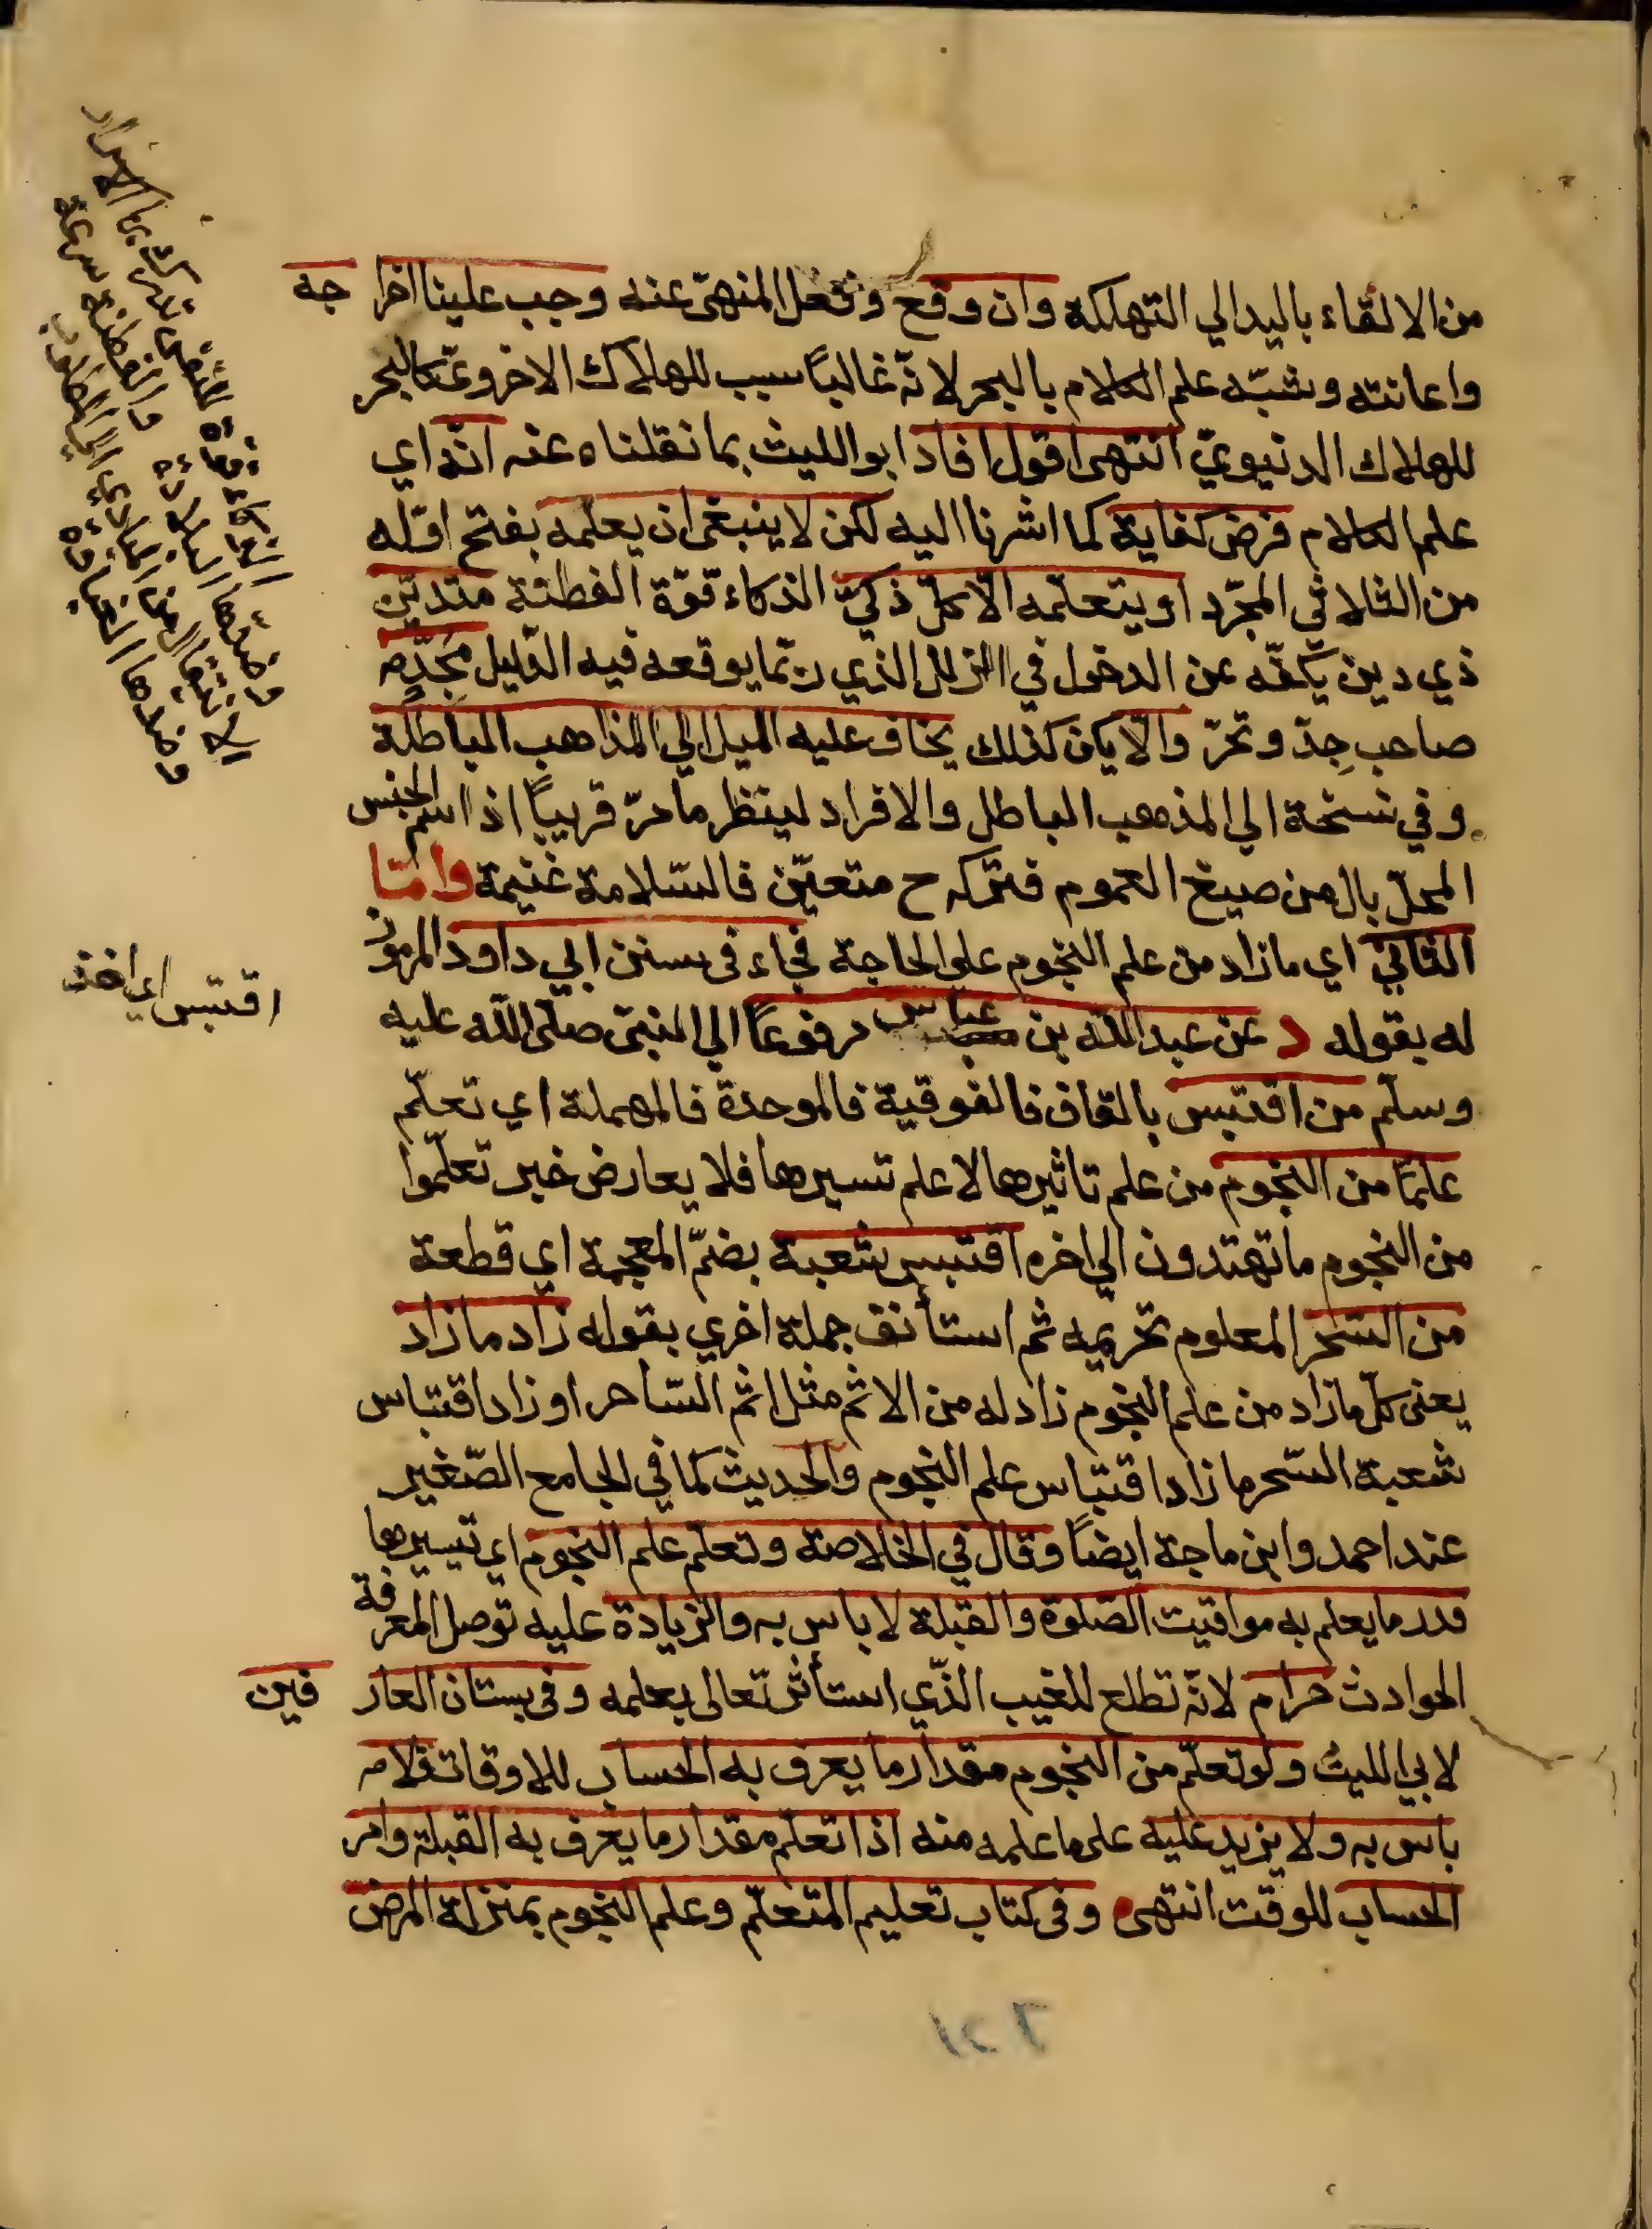 من الالقاء باليد الي التهلكة وان وقع وفعل المنهيّ عنه وجب علينا اخرا جه
واعانته وشبّه علم الكلام بالبحر لانّه غالباً سبب للهلاك الاخرويّ كالبحر
للهلاك الدنيويّ انتهى اقول افاد ابو الليث بما نقلناه عنه انّه اي
علم الكلام فرض كفاية كما اشرنا اليه لكن لا ينبغى ان يعلمه بفتح اوّله
من الثلاثي المجرّد او يتعلّمه الّا كلّ ذكيّ الذكاء قوّة الفطنة متديّن
ذي دين يكفّه عن الدخول في الزلل الذي ربّما يوقعه فيه الدّليل مُجِدّ
صاحب جِدّ وتحرّ والّا يكن كذلك يخاف عليه الميل الي المذاهب الباطلة
وفي نسخة الي المذهب الباطل والافراد لينظر ما مرّ قريباً اذ اسم الجنس
المحلّ بال من صيغ العموم فتركه ح متعيّن فالسّلامة غنيمة وامّا
الثاني اي ما زاد من علم النجوم على الحاجة فجاء فى سنن ابي داود المرموز
له بقوله د عن عبد الله بن عباس مرفوعاً الي النبىّ صلّى الله عليه
وسلّم من اقتبس بالقاف فالفوقية فالموحدة فالمهملة اي تعلّم
علمًا من النجوم من علم تاثيرها لا علم تسييرها فلا يعارض خبر تعلّموا
من النجوم ما تهتدون الي اخره اقتبس شعبة بضمّ المعجمة اي قطعة
من السّحر المعلوم تحريمه ثم استأنف جملة اخري بقوله زاد ما زاد
يعنى كلّ ما زاد من علم النجوم زاد له من الاثم مثل اثم السّاحر او زاد اقتباس
شعبة السّحر ما زاد اقتباس علم النجوم والحديث كما في الجامع الصّغير
عند احمد وابن ماجة ايضاً وقال في الخلاصة وتعلّم علم النجوم اي تسييرها
قدر ما يعلم به مواقيت الصّلوة والقبلة لا باس به والزيادة عليه توصل المعرفة
الحوادث حرام لانّه تطلع للغيب الذّي استأثر تعالى بعلمه وفى بستان العار فين
لابي الليث ولو تعلّم من النجوم مقدار ما يعرف به الحساب للاوقات فلا
باس به ولا يزيد عليه على ما علمه منه اذا تعلّم مقدار ما يعرف به القبلة وامر
الحساب للوقت انتهى وفى كتاب تعليم المتعلّم وعلم النجوم بمنزلة المرض
الذكاء قوة للنفس تدرك بها الاسرار
وضدها البلادة والفطنة سرعة
الانتقال من المبادي الي المطلوب
وضدها الغباوة
اقتبس اي اخذ